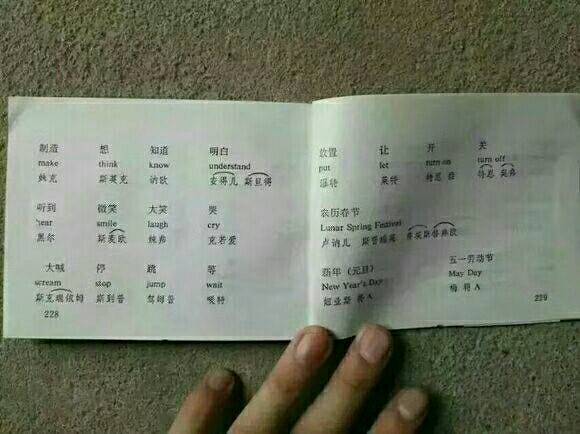 制造 想 知道 明白
make think know understand
妹克 斯英克 讷欧 安得儿 斯且得
听到 微笑 大笑 哭
hear smile laugh cry
黑尔 斯麦欧 辣弗 克若爱
大喊 停 跳 等
scream stop jump wait
斯克瑞依姆 斯到普 驾姆普 喂特
228
放置 让 开 关
put let turn on turn off
莱特 特恩
农历春节
Lunar Spring Festival
卢讷儿
新年（元旦） 五一劳动节
New Year's Day May Day
纽业斯 将A 梅 将A
229